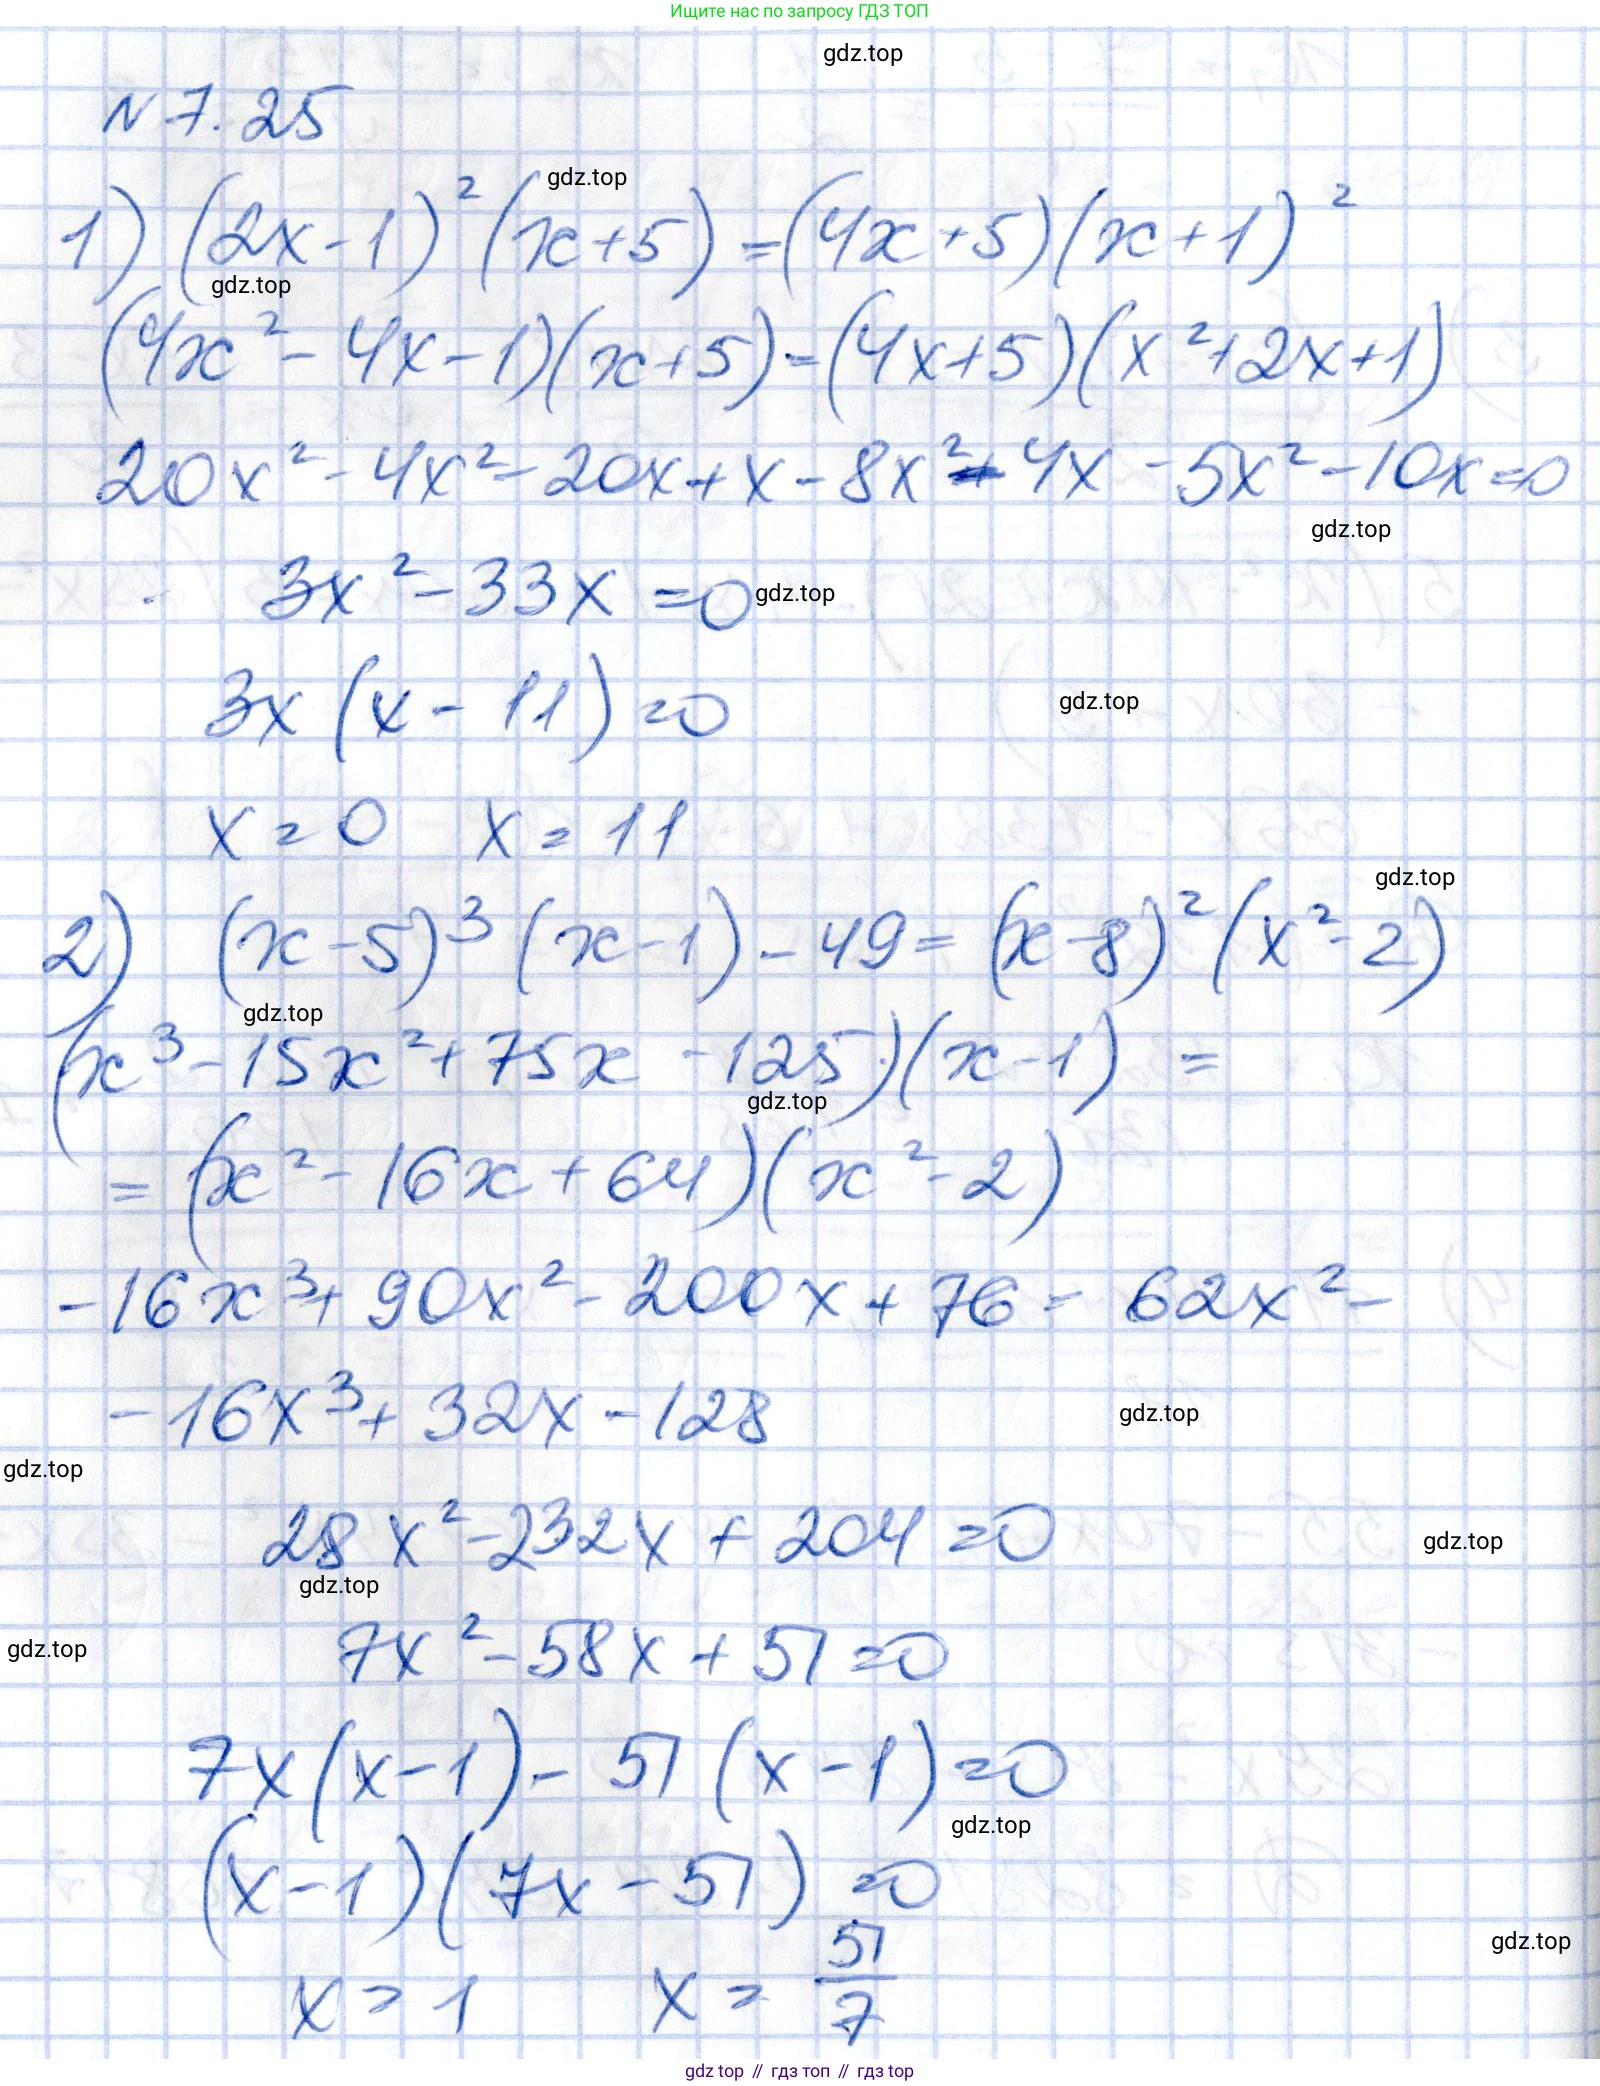 Ищите нас по запросу ГДЗ ТОП
gdz.top
N 7.25
gdz.top
1) (2x-1)² (x+5) = (4x+5)(x+1)²
gdz.top
(4x² - 4x - 1)(x+5) = (4x+5)(x²+2x+1)
20x² - 4x² - 20x + x - 8x² - 4x - 5x² - 10x = 0
gdz.top
3x² - 33x = 0
gdz.top
3x (x - 11) = 0
gdz.top
x = 0 x = 11
gdz.top
2) (x-5)³ (x-1) - 49 = (x-8)² (x²-2)
gdz.top
(x³ - 15x² + 75x - 125)(x-1) =
gdz.top
= (x² - 16x + 64)(x² - 2)
-16x³ + 90x² - 200x + 76 = 62x² -
-16x³ + 32x - 128
gdz.top
gdz.top
28x² - 232x + 204 = 0
gdz.top
gdz.top
7x² - 58x + 51 = 0
gdz.top
7x (x-1) - 51 (x-1) = 0
gdz.top
(x-1)(7x-51) = 0
gdz.top
x = 1 x = 51/7
gdz top // гдз топ // гдз top